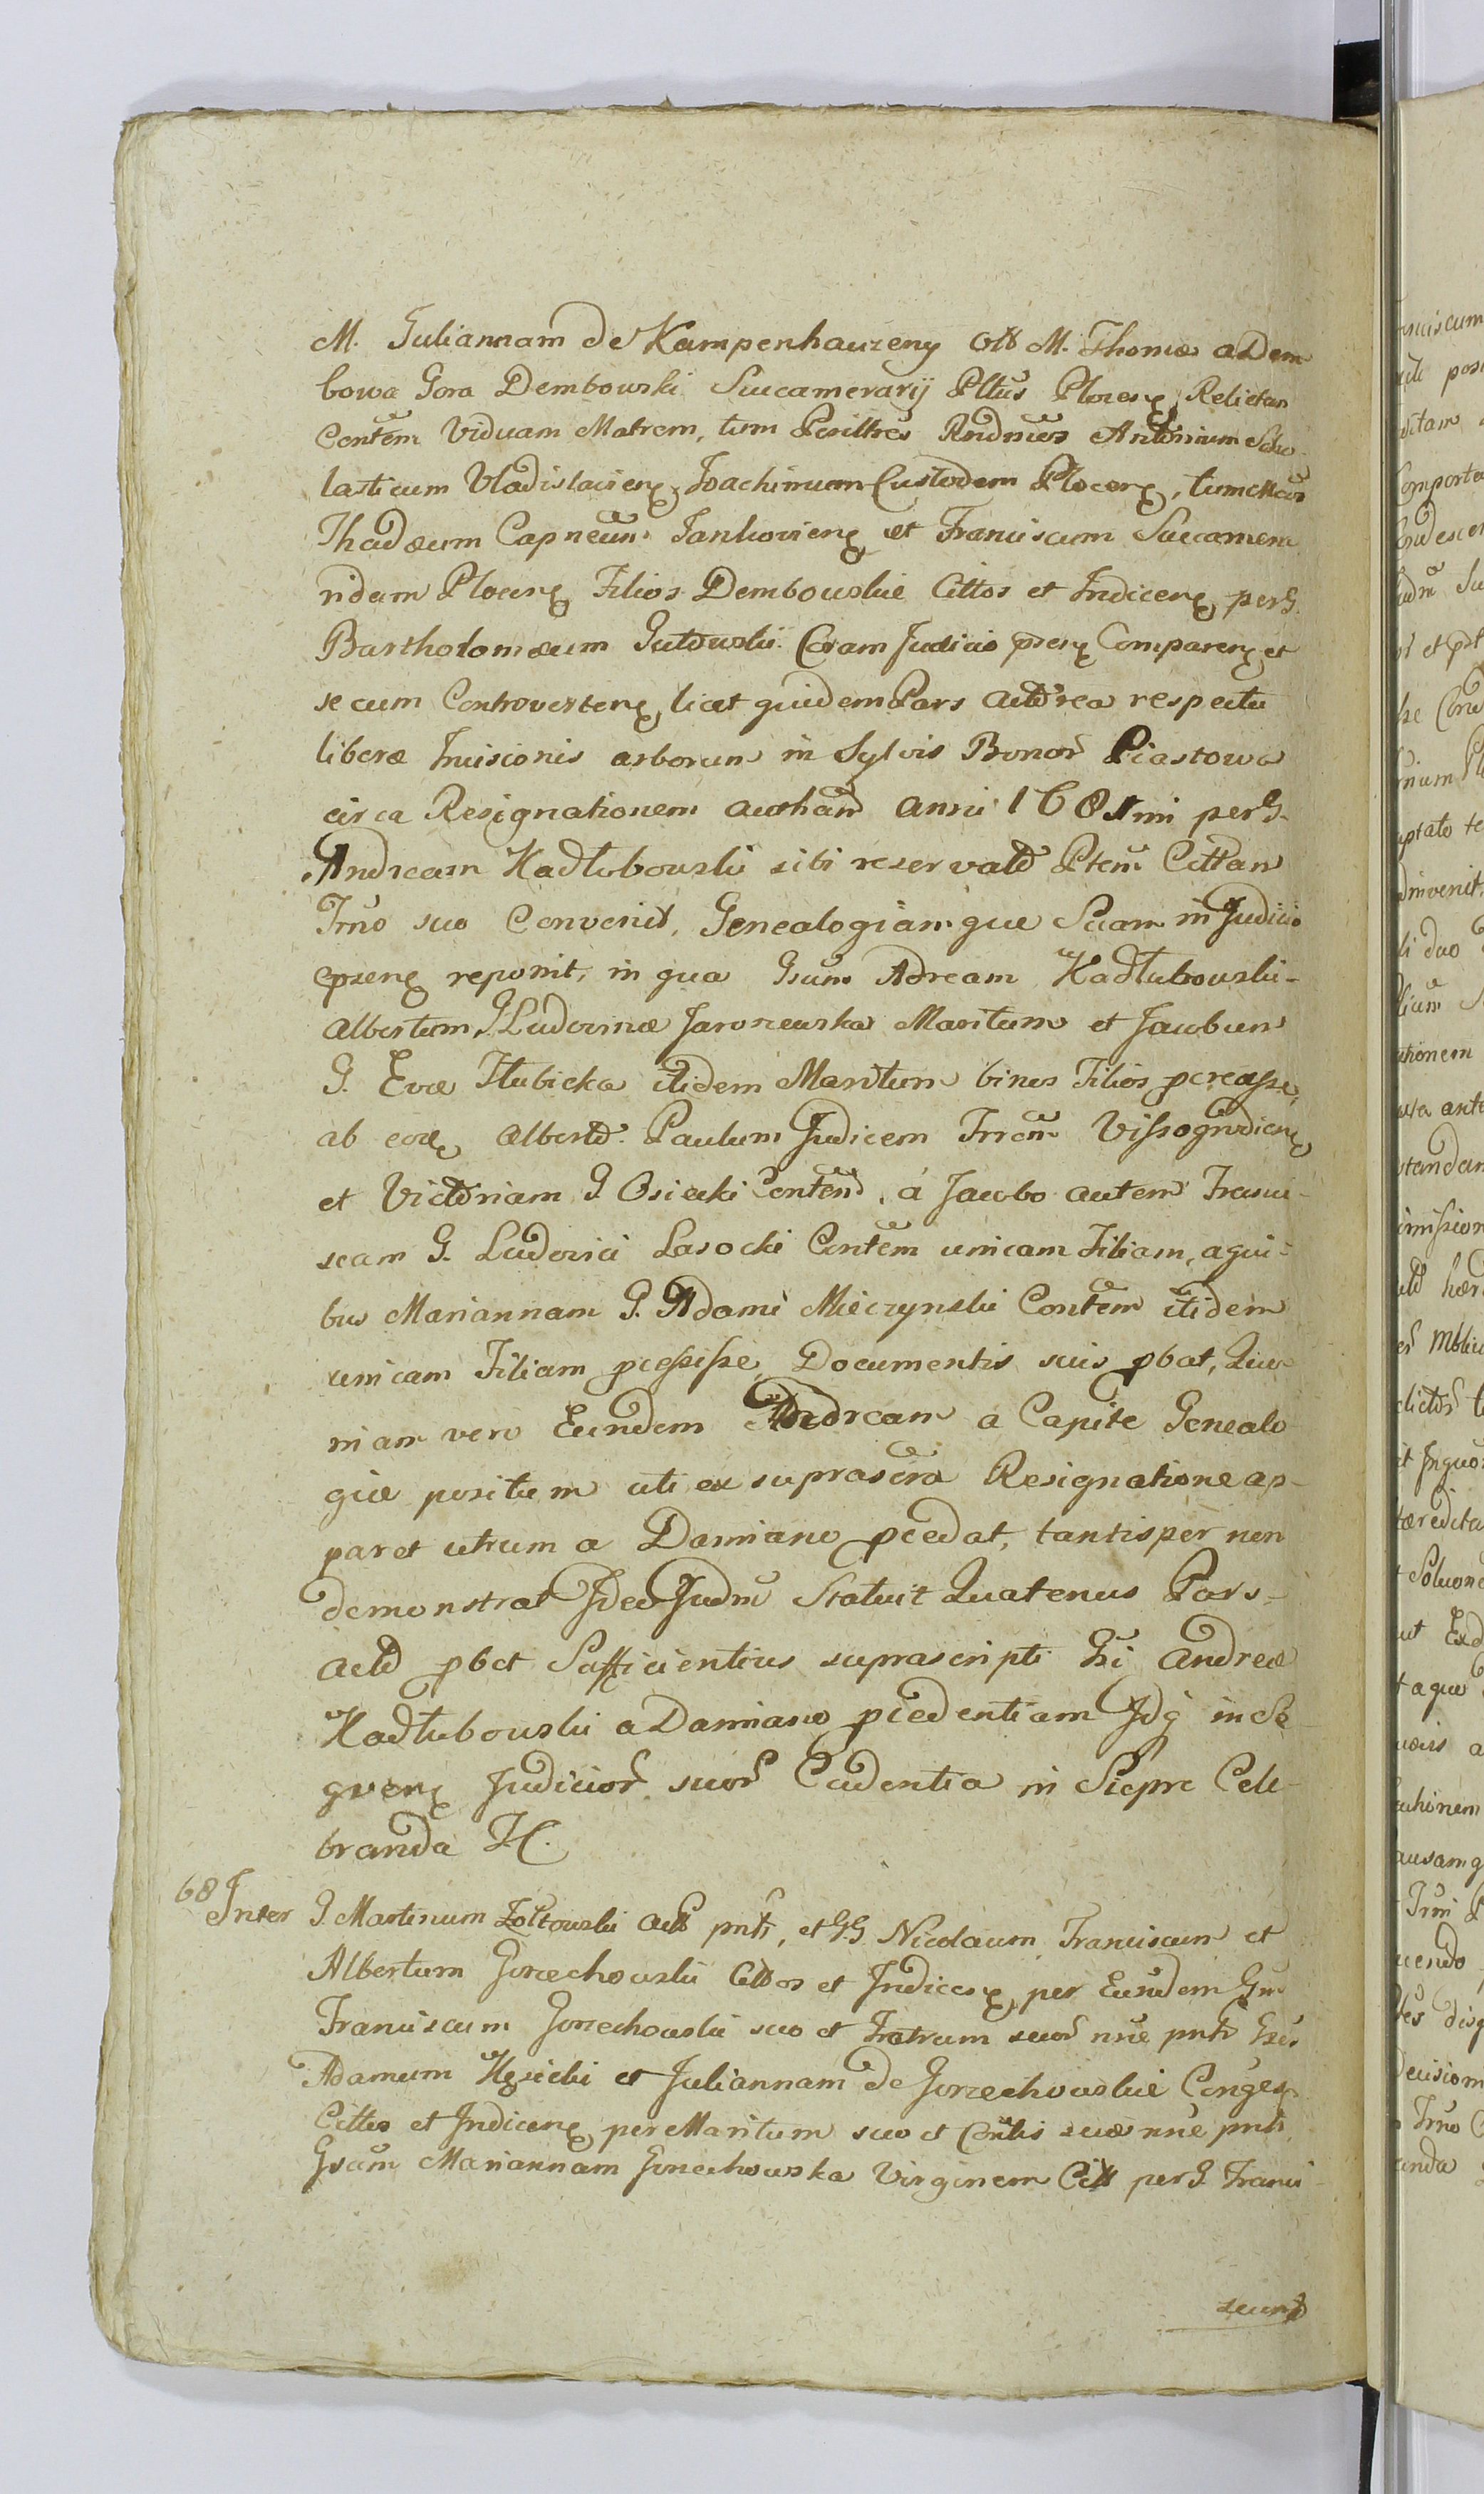 M. Juliannam de Kampenhauzeny Olt M. Thomæ a Dem
bowa Gora Dembowski Succamerarij Pltus Plocens Relictam
Contem Viduam Matrem, tum Perilltres Rndmos Antonium Scho
lasticum Vladislaviens, Joachimum Custodem Plocens, tum
Thadæum Capneum Jankoviens et Franciscum Succamera
ridam Plocens Filios Dembowskie Cittos et Indicens per G.
Bartholomæum Gutowski Coram Judicio præns Comparens et
secum Controvertens, licet quidem Pars Actorea respectu
liberæ Incisionis arborum in Sylvis Bonor Piastowo
circa Resignationem anni 1681mi per G.
Andream Kadłubowski sibi reservatd Ptem Cittam
Trno suo Convenit, Genealogiamque Suam in Judicio
præns reponit, in qua Gsum Adream Kadłubowski
Albertum G. Ludovinæ Jaroszewska Maritum et Jacobum
G. Evæ Hubicka itidem Maritum binos Filios pcreasse,
ab eors Albertd. Paulum Judicem Trrem Vissogrodiens
et Victoriam G. Osiecki Contem, á Jacobo autem Franci-
scam G. Ludovici Lasocki Contem unicam Filiam, a qui-
bus Mariannam G. Adami Mieczynski Contem itidem
unicam Filiam pcessisse Documentis suis pbat, Quo
niam vero Eundem Andream a Capite Genealo
giæ positum uti ex suprascra Resignatione ap-
paret utrum a Damiano pcedat, tantisper non
demonstrat Ideo Judm Statuit Quatenus Pars
actd pbet Sufficientius suprascripti Gsi Andreæ
Kadłubowski a Damiano pcedentiam Idq in Se
qvens Judicior suor Cadentia in Siepre Cele-
branda H.
68 Inter G. Martinum Zołtowski Actt pntr, et G.G. Nicolaum, Franciscum et
Albertum Gorzechowski Cittos et Indicens per Eundem Gm
Franciscum Gorzechowski suo et Fratrum suor nne pntr Gsos
Adamum Kęsicki et Juliannam de Gorzechowskie Conges
Cittos et Indicens per Maritum suo et Contis suæ nne pntr
Gsam Mariannam Gorzechowska Virginem Citt per G. Franci
scum